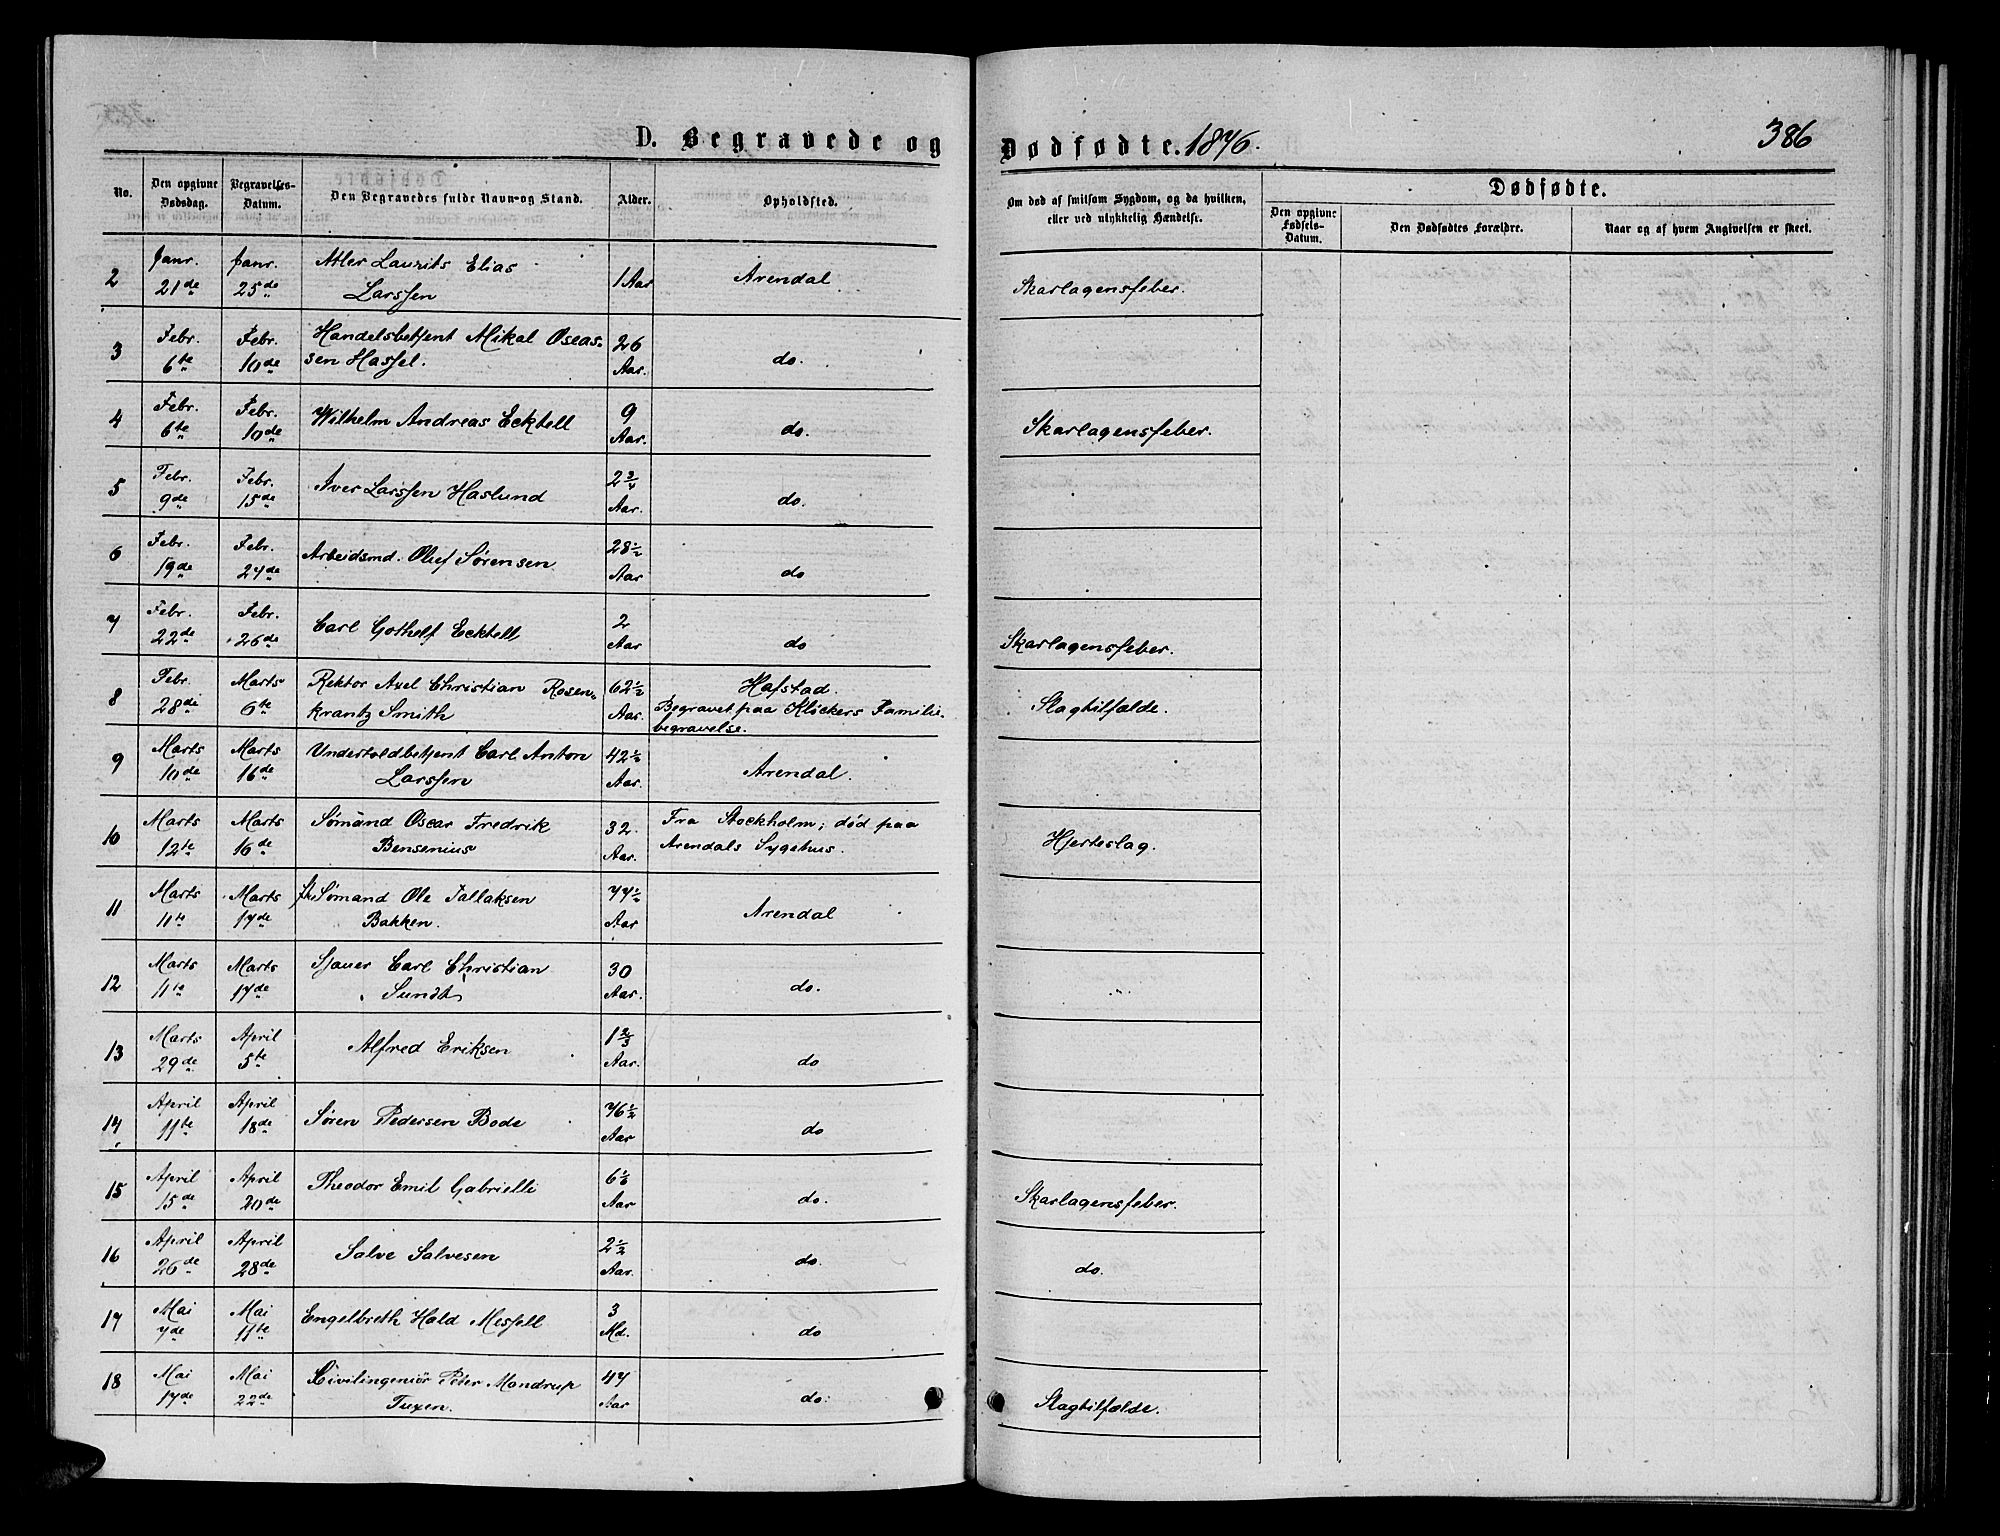 D. Begravede og Dødfødte. 1876.
386
No.
Den opgivne Dødsdag.
Begravelses-Datum.
Den Begravedes fulde Navn og Stand.
Alder.
Opholdsted.
Om død af smitsom Sygdom, og da hvilken, eller ved ulykkelig Hændelse.
Dødfødte.
Den opgivne Fødsels-Datum.
Den Dødfødtes Forældre.
Naar og af hvem Angivelsen er skeet.
2 Janr. 21de Janr. 25de Atler Laurits Elias Larssen 1 Aar Arendal Skarlagensfeber.
3 Febr. 6te Febr. 10de Handelsbetjent Mikal Oseassen Hassel. 26 Aar. do.
4 Febr. 6te Febr. 10de Wilhelm Andreas Ecktell 9 Aar. do. Skarlagensfeber.
5 Febr. 9de Febr. 15de Iver Larssen Haslund 2 3/4 Aar. do.
6 Febr. 19de Febr. 24de Arbeidsmd. Oluf Sørensen 28 1/2 Aar do
7 Febr. 22de Febr. 26de Carl Gothelf Ecktell 2 Aar do Skarlagensfeber.
8 Febr. 28de Marts 6te Rektor Axel Christian Rosenkrantz Smith 62 1/2 Aar. Hafstad. Begravet paa Kløckers Familiebegravelse. Slagtilfælde.
9 Marts 10de Marts 16de Undertoldbetjent Carl Anton Larssen 42 1/2 Aar. Arendal.
10 Marts 12te Marts 16de Sømand Oscar Fredrik Bensenius 32. Aar. Fra Stockholm; død paa Arendals Sygehus. Hjerteslag.
11 Marts 11te Marts 17de fh. Sømand Ole Tallaksen Bakken. 77 1/2 Aar Arendal
12 Marts 11te Marts 17de Sjauer Carl Christian Sundt 30 Aar. do.
13 Marts 29de April 5te Alfred Eriksen 1 2/3 Aar. do
14 April 11te April 18de Søren Pedersen Bode 76 1/2 Aar do
15 April 15de April 20de Theodor Emil Gabrielli 6 1/2 Aar do. Skarlagensfeber.
16 April 26de April 28de Salve Salvesen 2 1/2 Aar. do. do.
17 Mai 7de Mai 11te Engelbreth Hald Messell 3 Md. do
18 Mai 17de Mai 22de Civilingeniør Peter Mandrup Tuxen. 47 Aar do. Slagtilfælde.